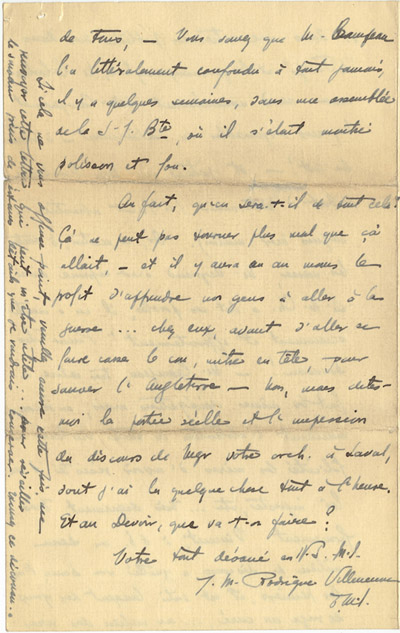 de tous, — Vous savez que M.
l'a littéralement confondu à tout jamais,
il y a quelques semaines, dans une assemblée
de la S-J. Bte, où il s'était montré
polisson et fou.
Au fait, qu'en sera-t-il de tout cela?
Ça ne peut pas tourner plus mal que ça
allait, — et il y aura eu au moins le
profit d'apprendre nos gens à aller à la
guerre ... chez eux, avant d'aller se
faire casser le cou, mitre en tête, pour
sauver l'Angleterre — Non, mais dites-
moi la portée réelle et l'impression
du discours de Mgr votre arch. à Laval,
dont j'ai lu quelque chose tout à l'heure.
Et au Devoir, que va-t-on faire?
Votre tout dévoué en N.S. M.I.
J. M. Rodrigue Villeneuve
O.M.I.
Si cela ne vous offusque point, veuillez encore cette fois, me
renvoyer cette lettre qui peut m'être utile... pour réveiller
le souvenir précis de certains détails que je voudrais conserver.